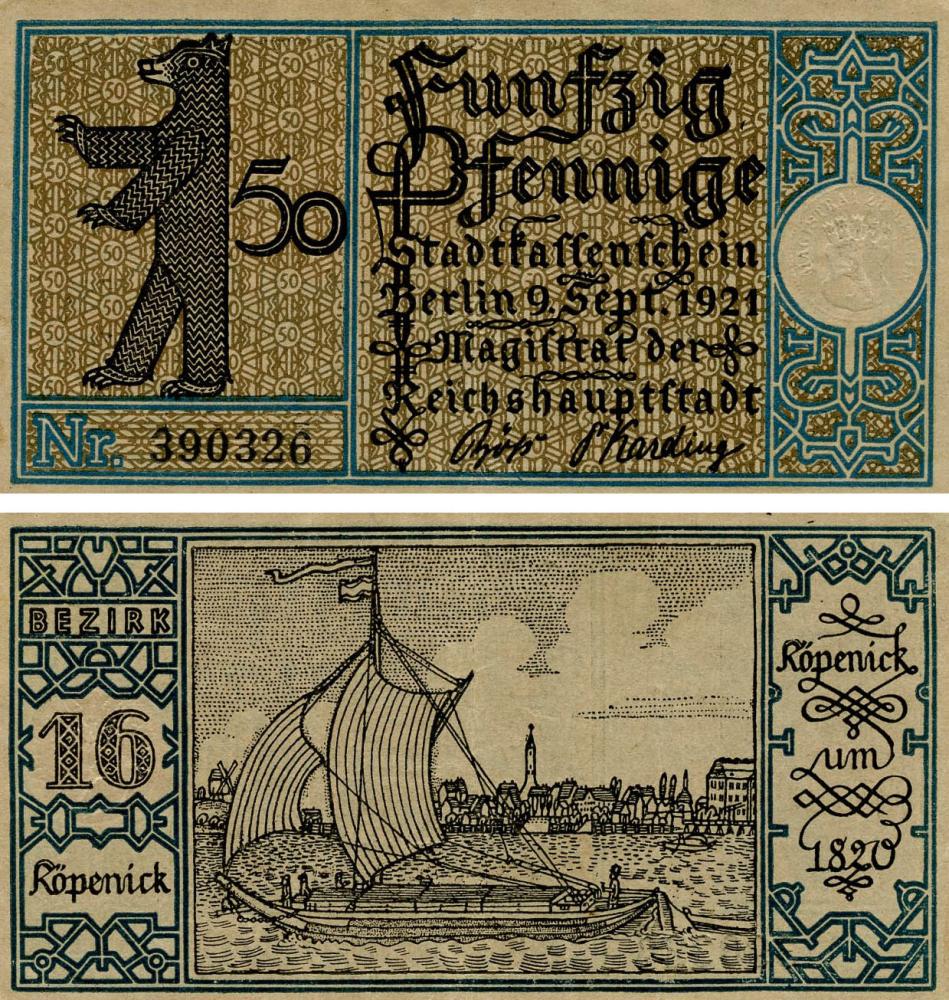 50
Funfzig
Pfennige
Stadtkaſſenſchein
Berlin 9. Sept. 1921
Magiſtrat der
Reichshauptſtadt
Nr. 390326
BEZIRK
16
Köpenick
Köpenick
um
1820